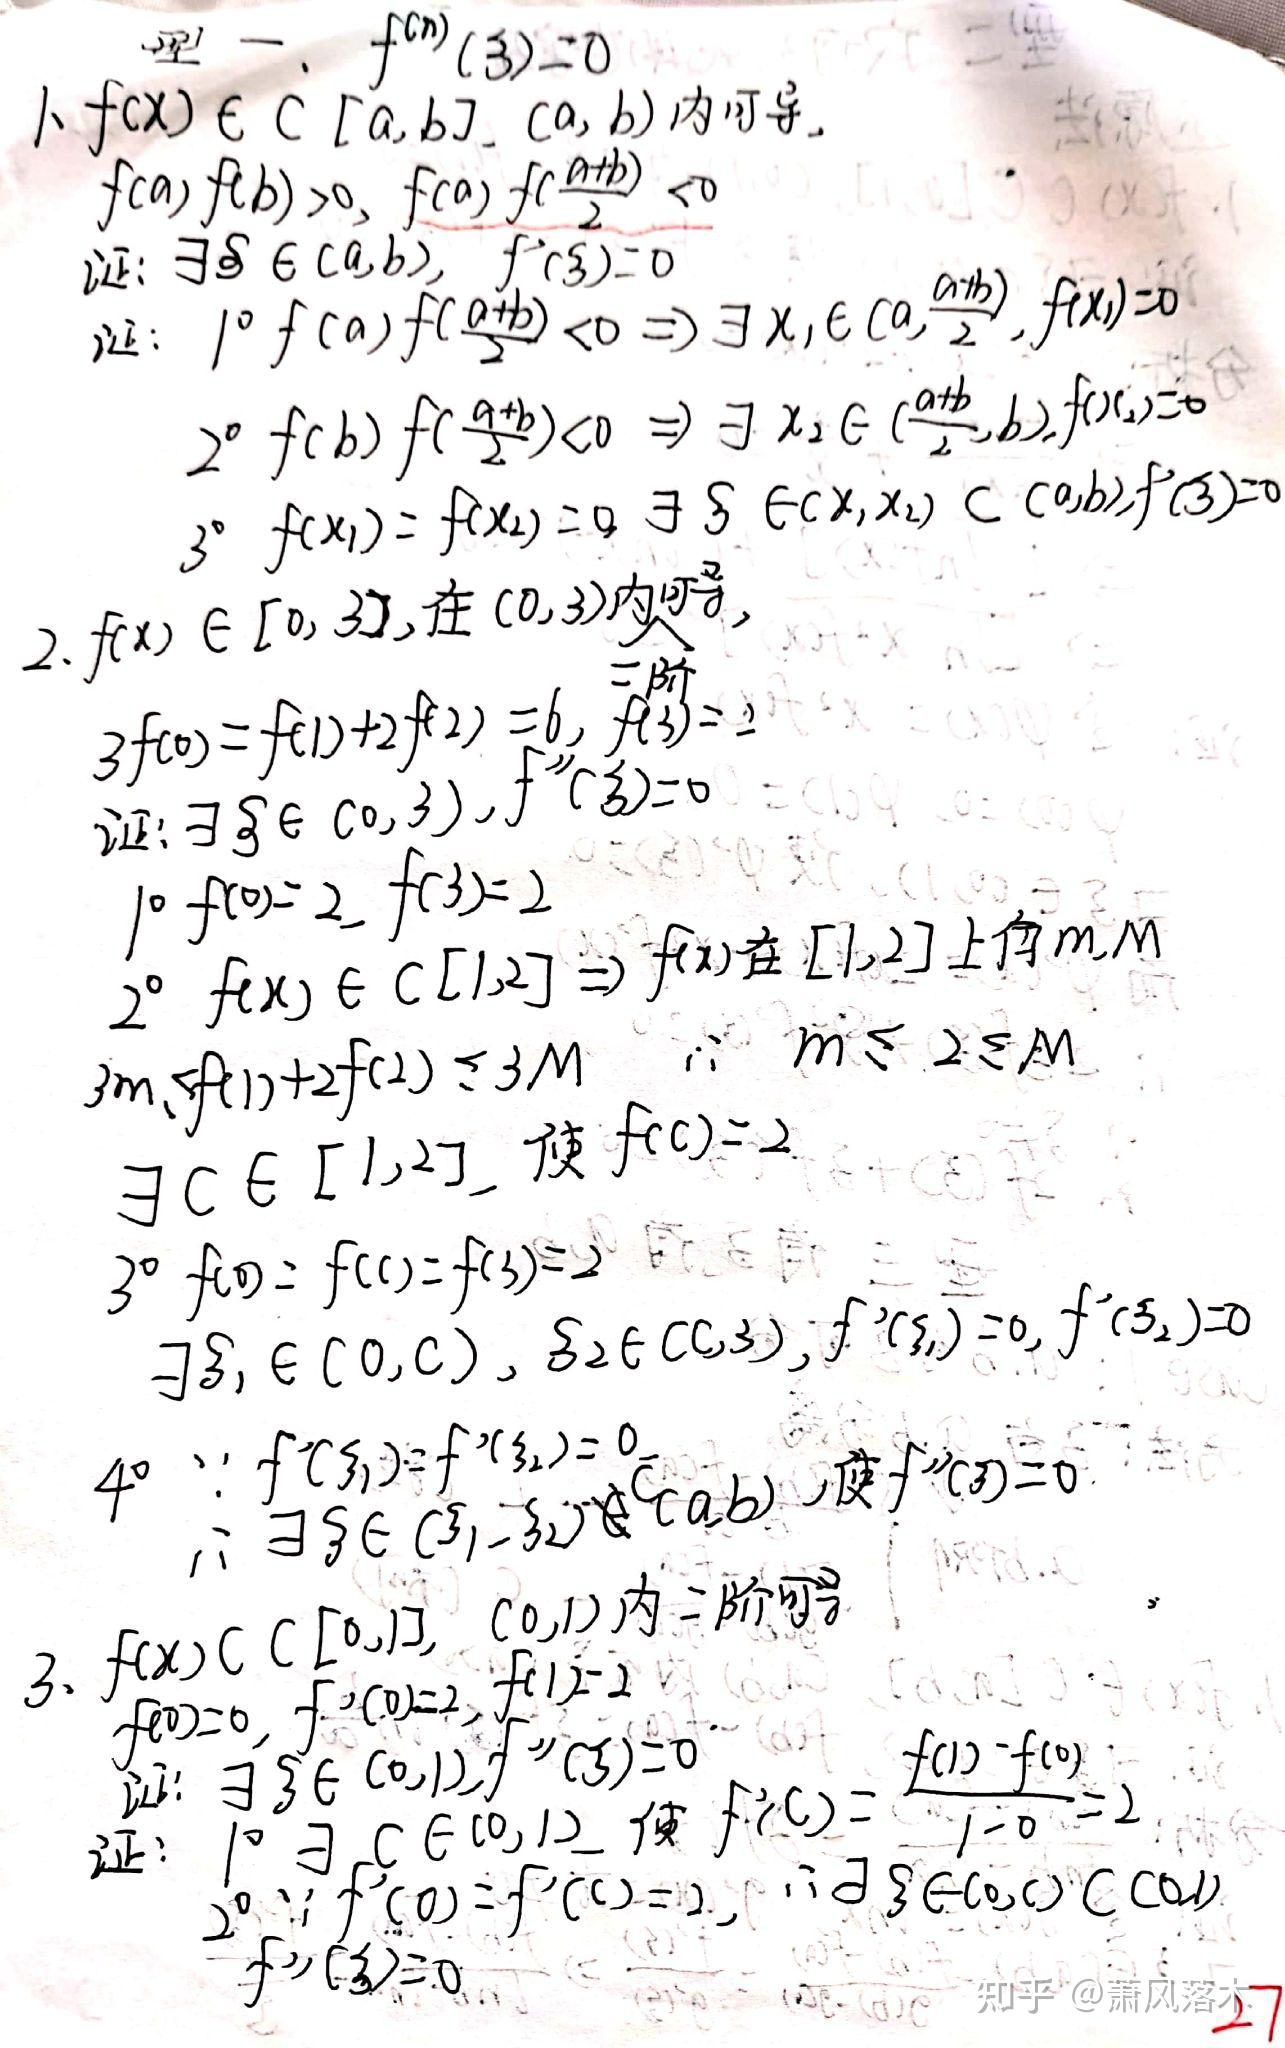 型一. f⁽ⁿ⁾(ξ)=0
1、f(x)∈C[a,b], (a,b)内可导,
f(a)f(b)>0, f(a)f(\frac{a+b}{2})<0
证: ∃ξ∈(a,b), f'(ξ)=0
证: 1° f(a)f(\frac{a+b}{2})<0 ⇒ ∃x₁∈(a,\frac{a+b}{2}), f(x₁)=0
2° f(b)f(\frac{a+b}{2})<0 ⇒ ∃x₂∈(\frac{a+b}{2},b), f(x₂)=0
3° f(x₁)=f(x₂)=0, ∃ξ∈(x₁,x₂)⊂(a,b), f'(ξ)=0
2. f(x)∈[0,3], 在(0,3)内可导,
二阶
3f(0)=f(1)+2f(2)=6, f(3)=2
证: ∃ξ∈(0,3), f''(ξ)=0
1° f(0)=2, f(3)=2
2° f(x)∈C[1,2] ⇒ f(x)在[1,2]上有m,M
3m≤f(1)+2f(2)≤3M ∴ m≤2≤M
∃C∈[1,2], 使f(C)=2
3° f(0)=f(C)=f(3)=2
∃ξ₁∈(0,C), ξ₂∈(C,3), f'(ξ₁)=0, f'(ξ₂)=0
4° ∵ f'(ξ₁)=f'(ξ₂)=0
∴ ∃ξ∈(ξ₁,ξ₂)⊂(a,b), 使f''(ξ)=0
3、f(x)⊂C[0,1], (0,1)内二阶可导
f(0)=0, f'(0)=2, f(1)=2
证: ∃ξ∈(0,1), f''(ξ)=0
证: 1° ∃C∈(0,1), 使f'(C)=\frac{f(1)-f(0)}{1-0}=2
2° ∵ f'(0)=f'(C)=2, ∴∃ξ∈(0,C)⊂(0,1)
f''(ξ)=0
知乎 @萧风落木
27